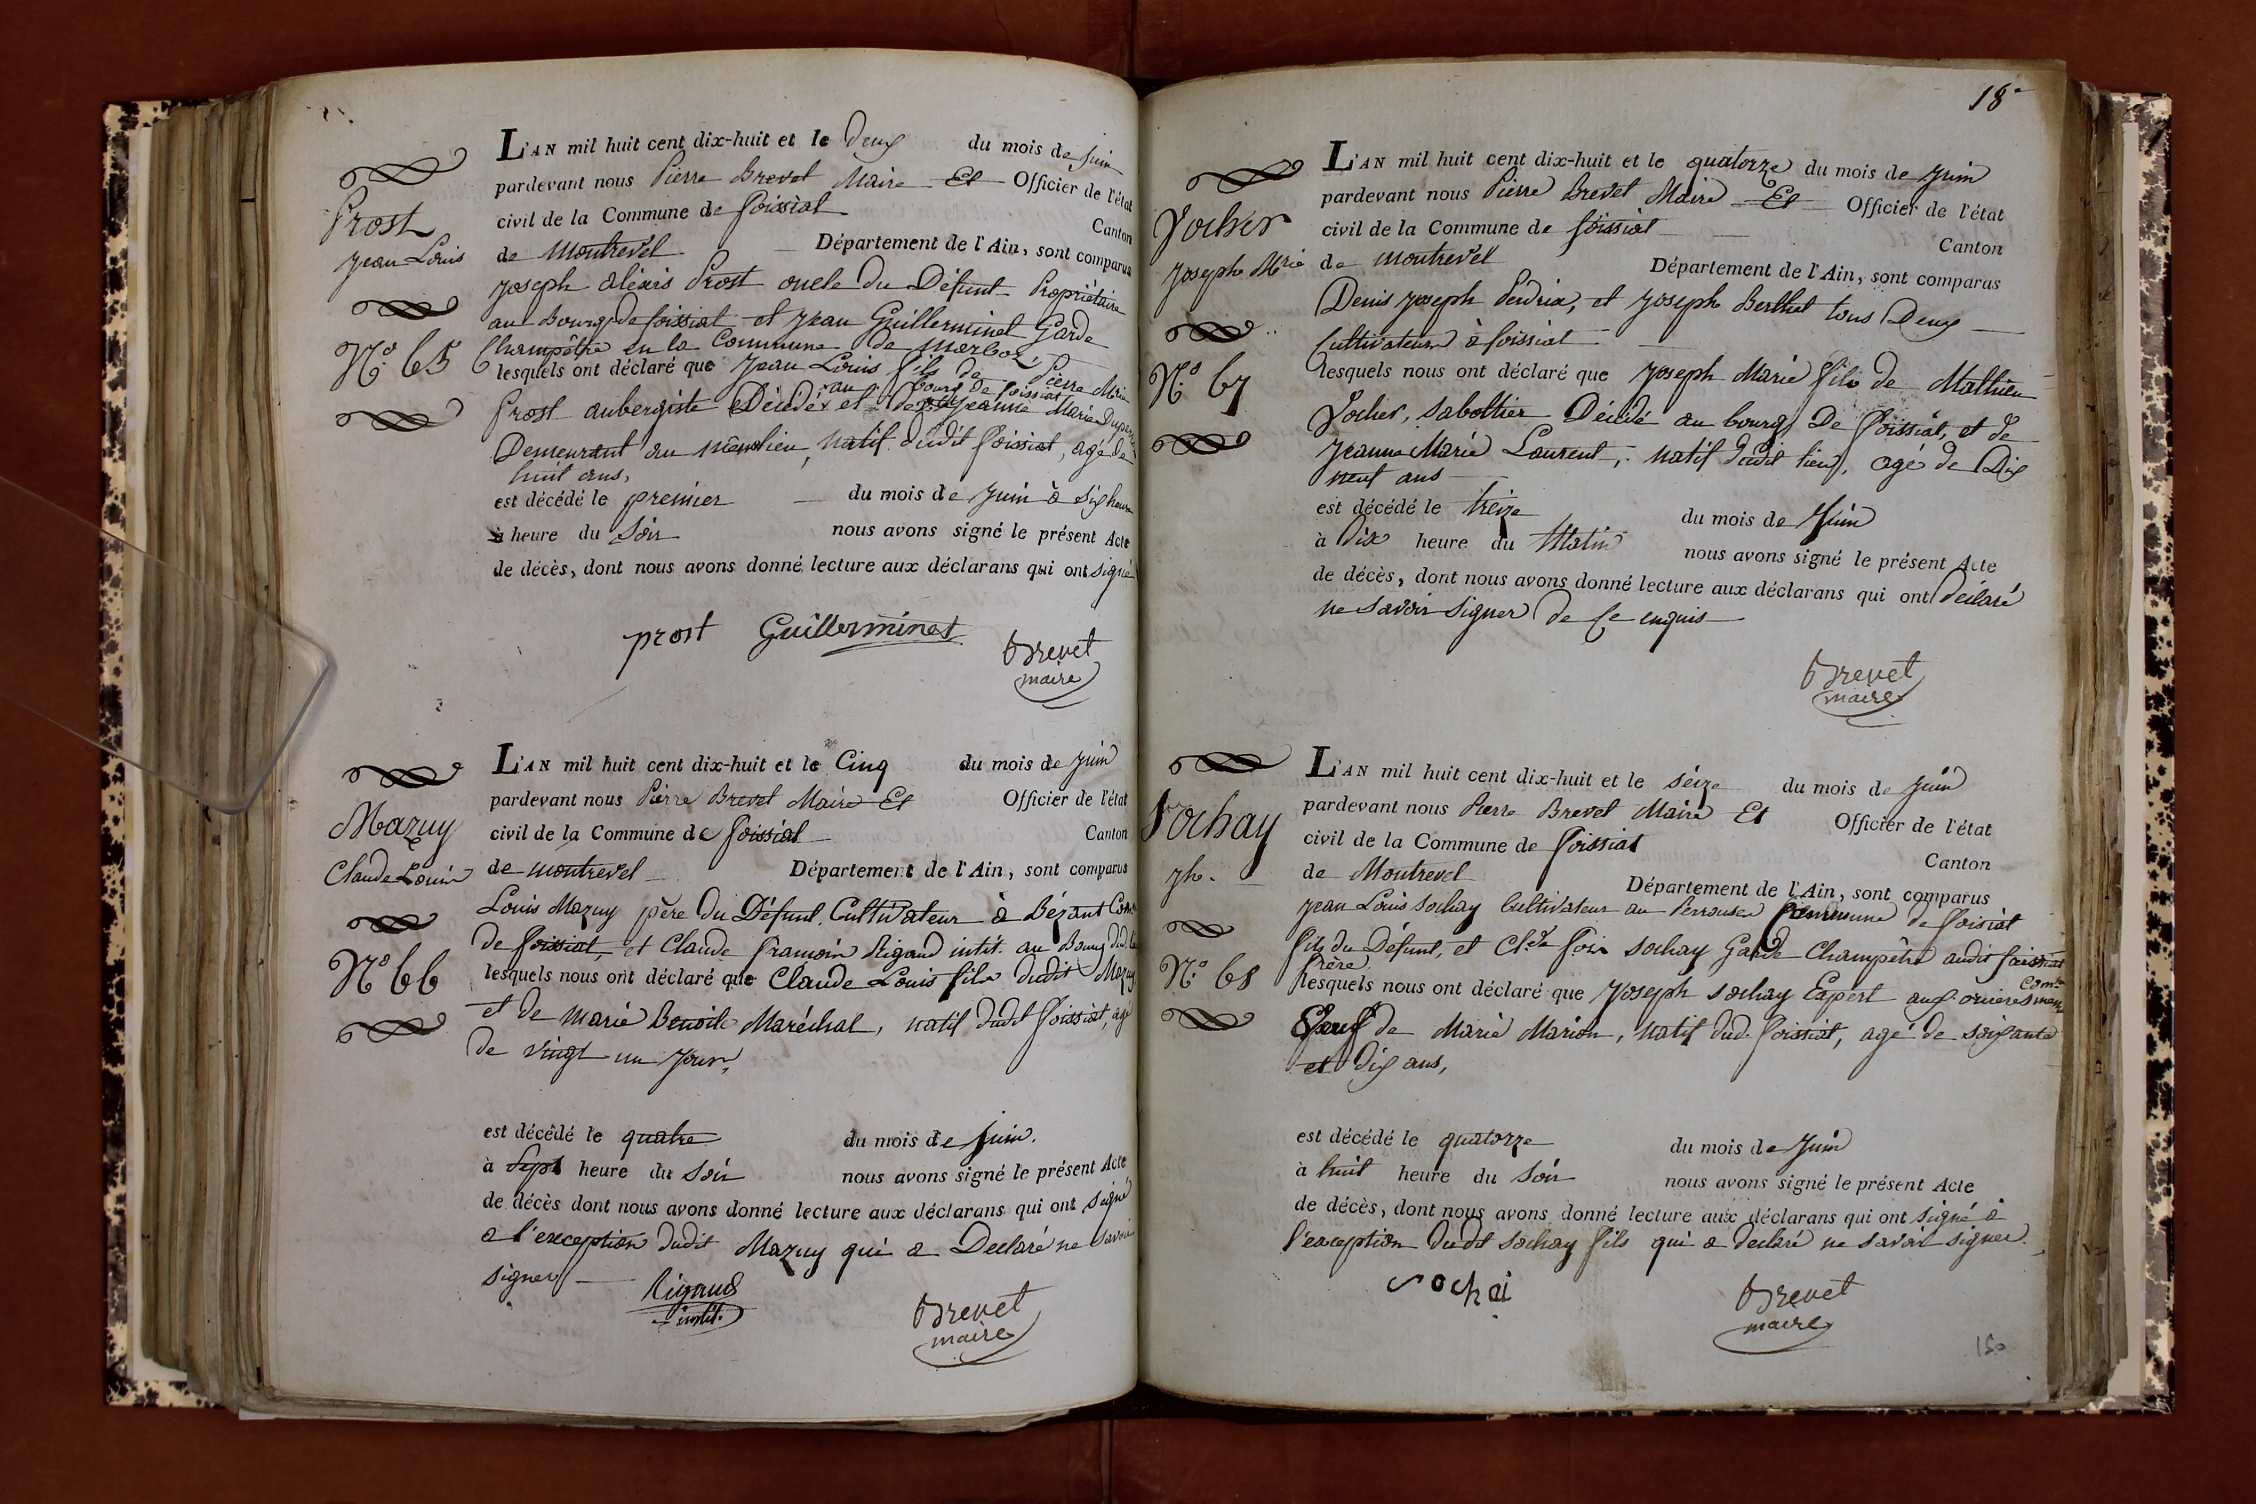 Prost
Jean Louis
N.º 65
L'AN mil huit cent dix-huit et le Deux du mois de Juin
pardevant nous Pierre Brevet Maire Et Officier de l'état
civil de la Commune de foissiat Canton
de Montrevel Département de l'Ain, sont comparus
Joseph aléxis Prost oncle du Défunt Propriétaire
au Bourg de foissiat et Jean Guillerminet Garde
Champêtre en la Commune de marboz
lesquels ont déclaré que Jean Louis fils de Pierre Marie
au bourg de foissiat
Prost aubergiste Décédé et de Jeanne Marie
Demeurant au même lieu, natif dudit foissiat, agé de
huit ans,
est décédé le premier du mois de Juin à six heures
à heure du Soir nous avons signé le présent Acte
de décès, dont nous avons donné lecture aux déclarans qui ont signé
prost Guillerminet
Brevet
maire
Mazuy
Claude Louis
Nº 66
L'AN mil huit cent dix-huit et le Cinq du mois de Juin
pardevant nous Pierre Brevet Maire Et Officier de l'état
civil de la Commune de foissiat Canton
de montrevel Département de l'Ain, sont comparus
Louis Mazuy père du Défunt Cultivateur à Bézant Com.ne
de foissiat, et Claude françois Rigaud instit. au Bourg dud.
lesquels nous ont déclaré que Claude Louis fils dudit Mazuy
et de Marie Benoite Maréchal, natif dudit foissiat, agé
de vingt un jours,
est décédé le quatre du mois de Juin.
à Sept heure du Soir nous avons signé le présent Acte
de décès dont nous avons donné lecture aux déclarans qui ont signé
a l'exception dudit Mazuy qui a Declaré ne savoir
signer
Rigaud
instit.
Brevet
maire
18
Vocher
Joseph Mrie
N.º 67
L'AN mil huit cent dix-huit et le quatorze du mois de Juin
pardevant nous Pierre Brevet Maire Et Officier de l'état
civil de la Commune de foissiat Canton
de montrevel Département de l'Ain, sont comparus
Denis Joseph Perdrix, et Joseph Berthet tous Deux
Cultivateurs à foissiat
lesquels nous ont déclaré que Joseph Marie fils de Mathieu
Vocher, sabottier Décédé au bourg De foissiat, et de
Jeanne Marie Laurent, natif dudit lieu, agé de Dix
neuf ans
est décédé le treize du mois de Juin
à Dix heure du Matin nous avons signé le présent Acte
de décès, dont nous avons donné lecture aux déclarans qui ont Déclaré
ne savoir signer de Ce enquis
Brevet
maire
Sochay
Jh.
N.º 68
L'AN mil huit cent dix-huit et le séize du mois de Juin
pardevant nous Pierre Brevet Maire Et Officier de l'état
civil de la Commune de foissiat Canton
de Montrevel Département de l'Ain, sont comparus
Jean Louis sochay Cultivateur au Commune de foissiat
fils du Défunt, et Cl.de sochay Garde Champêtre audit foissiat
frère
lesquels nous ont déclaré que Joseph sochay Expert aux Com.ne
Veuf de Marie Marion, natif dud. foissiat, agé de soixante
et dix ans,
est décédé le quatorze du mois de Juin
à huit heure du Soir nous avons signé le présent Acte
de décès, dont nous avons donné lecture aux déclarans qui ont signé à
l'exception dudit sochay fils qui a declaré ne savoir signer.
sochai
Brevet
maire
150